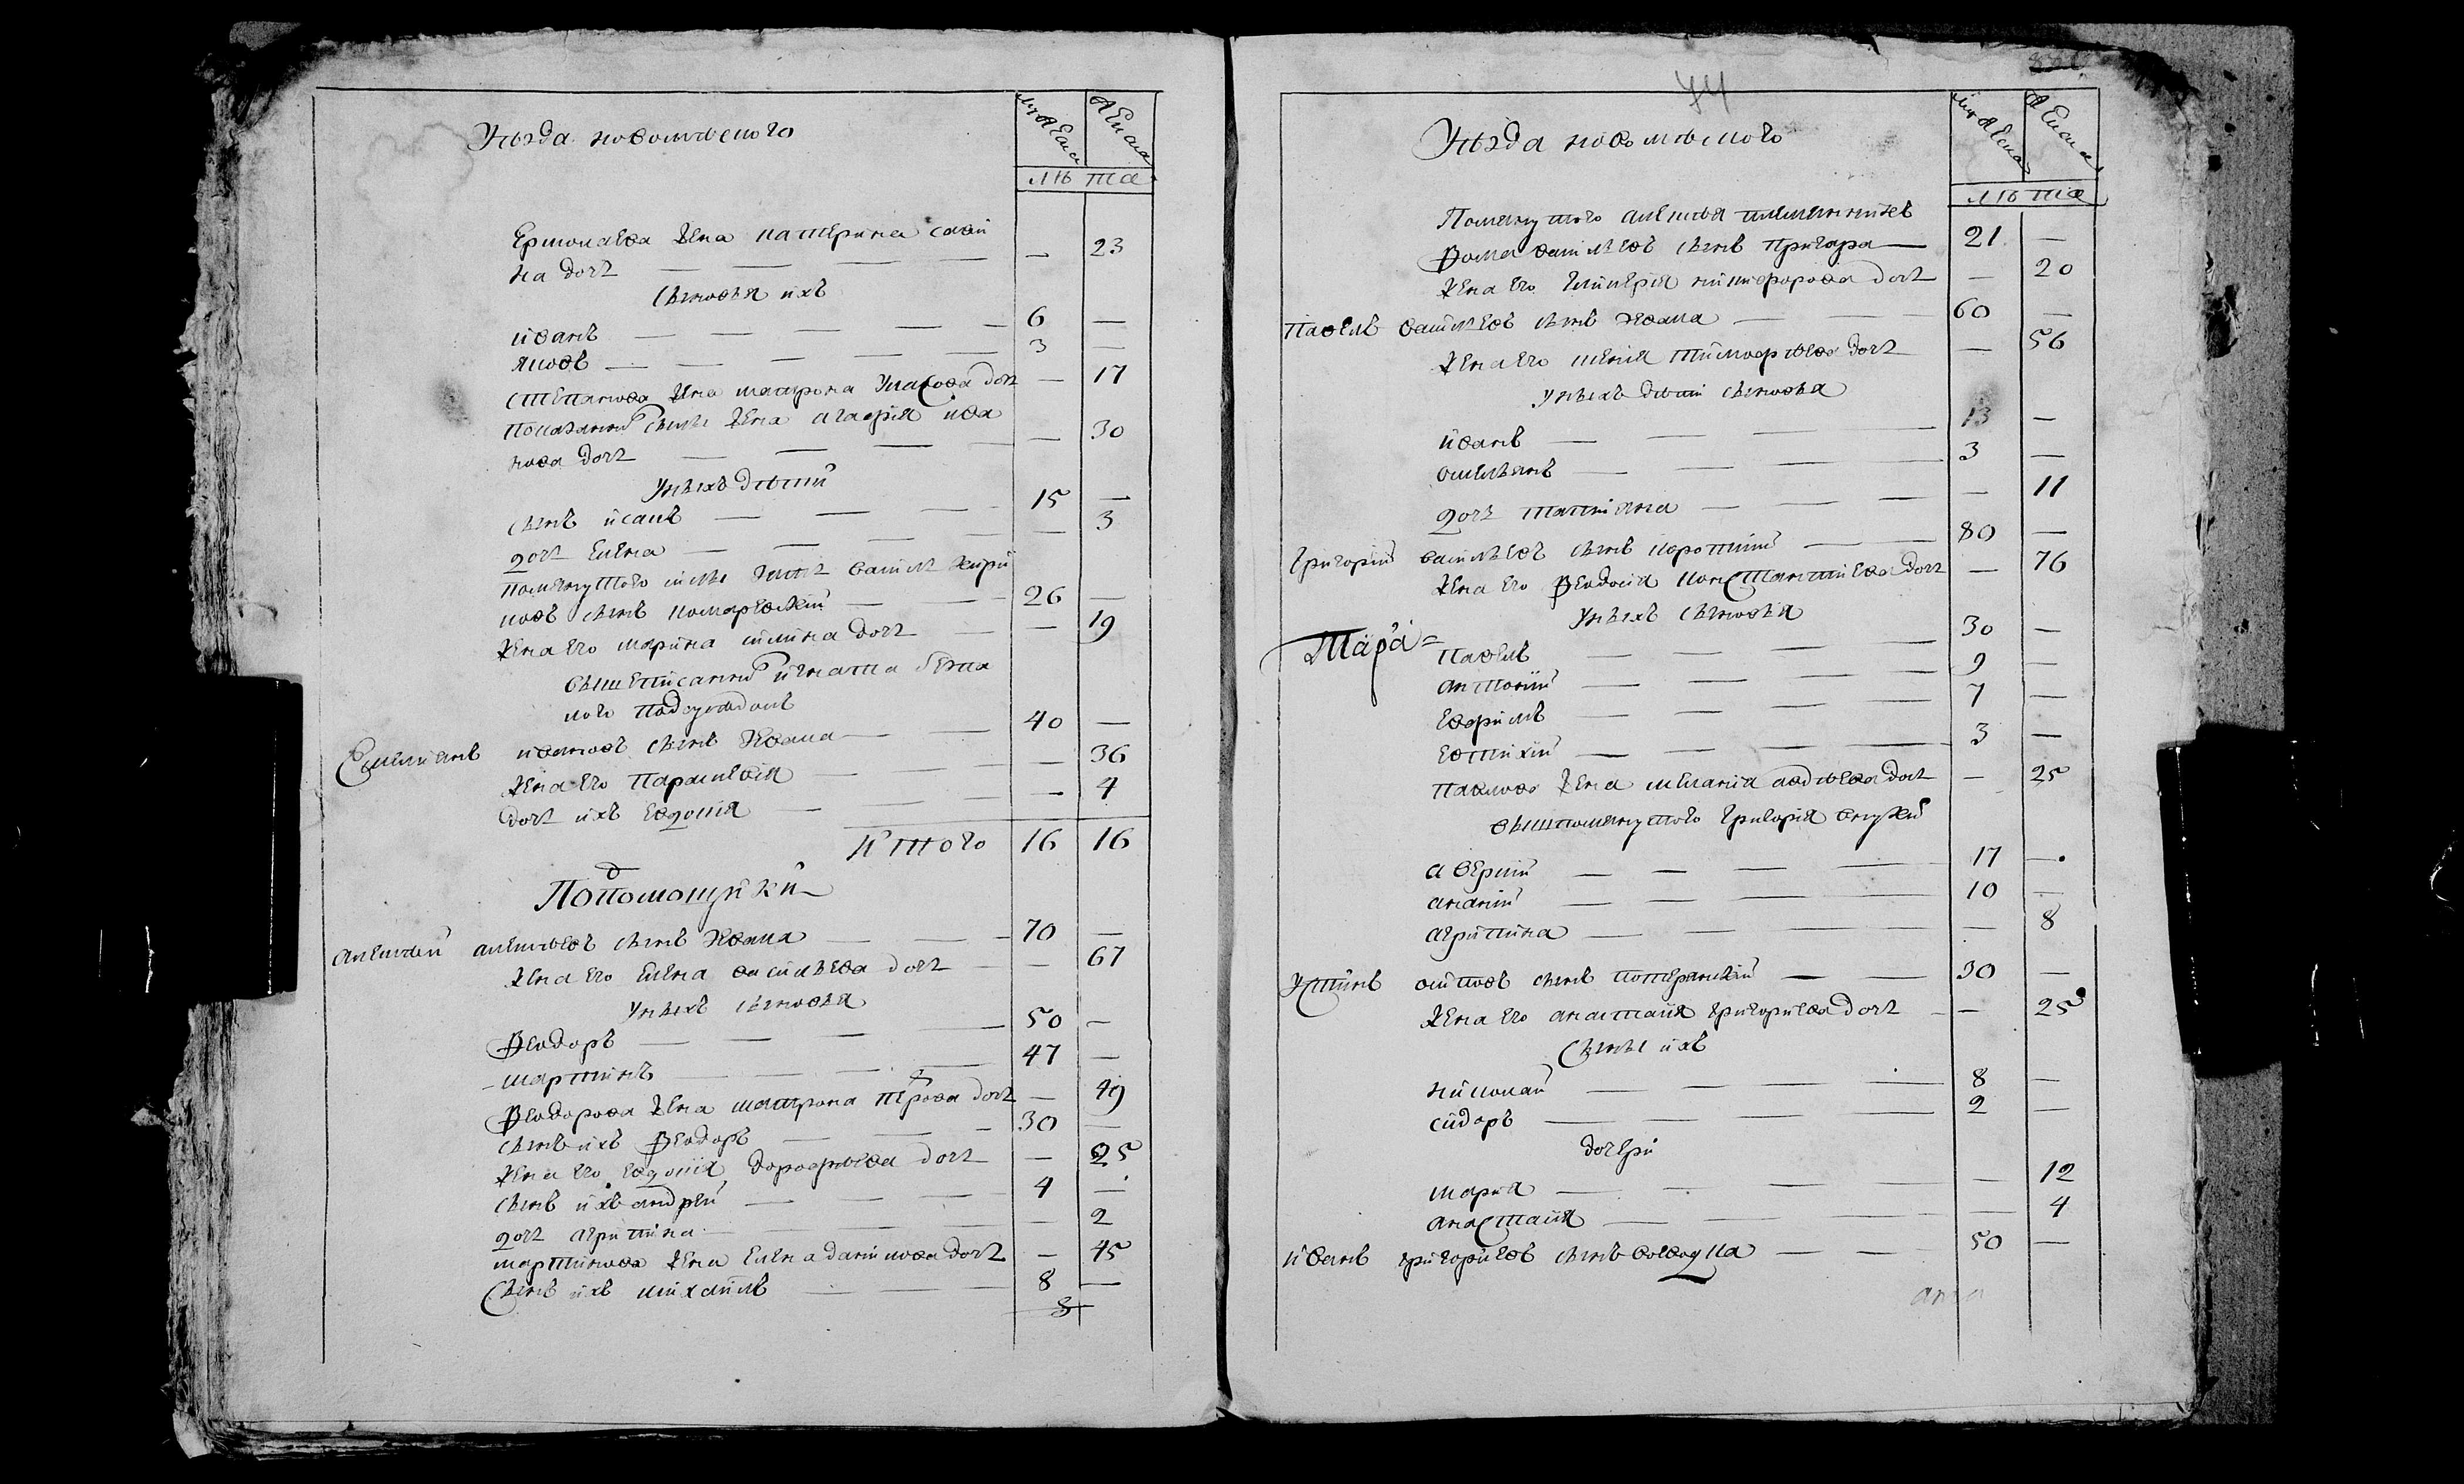 Уезда новомлѣнского
мужеска
женска
лѣта
Ермолаева жена катерина сави
на доч — 23
Сыновья ихъ
иванъ 6 —
яковъ 3 —
степанова жена матрона Уласова доч — 17
показанной жена агафия ива
нова доч — 30
У нихъ дѣти
сынъ исакъ 15 —
доч елена — 3
помянутого зять василь кири
ловъ сынъ комаревский 26 —
жена его марина доч — 19
вышеписанной игната
кого подсуседокъ
Емелиянъ ивановъ сынъ Жвака 40 —
жена его параскевия — 36
доч ихъ евдокия — 4
Итого 16 16
Подпомощики
алексѣй алексѣевъ сынъ Жвака 70 —
жена его елена василѣева доч — 67
У нихъ сыновья
Феодоръ 50 —
мартинъ 47 —
Феодорова жена матрона петрова доч — 49
сынъ ихъ Феодоръ 30 —
жена его евдокия дорофѣева доч — 25
сынъ ихъ андрей 4 —
доч агрипина — 2
мартинова жена елена данилова доч — 45
Сынъ ихъ михаилъ 8 —
8
74
Уезда новомлѣнского
мужеска
женска
лѣта
Помянутого алексѣя племянникъ
Фома василевъ сынъ 21 —
жена его гликерия никифорова доч — 20
Павелъ василевъ сынъ Жвака 60 —
жена его тимофѣева доч — 56
У нихъ дѣти сыновья
иванъ 13 —
емельянъ 3 —
доч татияна — 11
Григорий василевъ сынъ коропский 80 —
жена его Феодосия константинова доч — 76
У нихъ сыновья
Тара=
павелъ 30 —
антоний 9 —
ефримъ 7 —
евтихий 3 —
павлова жена мелания авдѣева доч — 25
вышпомянутого григория внуки
аверкий 17 —
ананий 10 —
агрипина — 8
Устинъ осиповъ сынъ 30 —
жена его анастасия григориева доч — 25
Сыны ихъ
николай 8 —
сидоръ 2 —
дочери
мария — 12
анастасия — 4
иванъ григориевъ сынъ 50 —